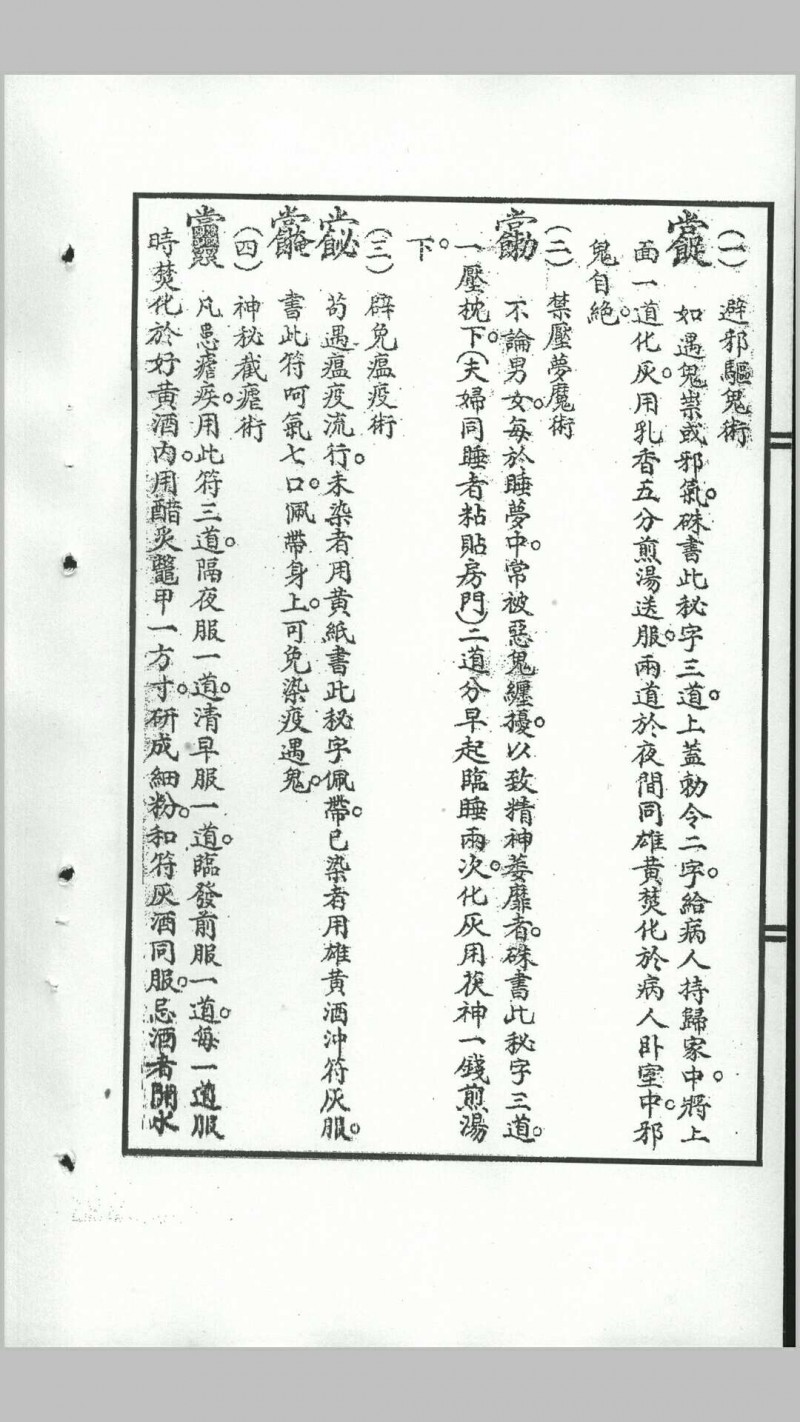 (一) 避邪驅鬼術
如遇鬼祟或邪氣。硃書此秘字三道。上蓋勅令二字。給病人持歸家中。將上
面一道化灰。用乳香五分煎湯送服。兩道於夜間同雄黃焚化於病人卧室中。邪
鬼自絕。
(二) 禁壓夢魔術
不論男女。每於睡夢中。常被惡鬼纏擾。以致精神萎靡者。硃書此秘字三道。
一壓枕下。(夫婦同睡者粘貼房門)二道分早起臨睡兩次。化灰用茯神一錢煎湯
下。
(三) 辟免瘟疫術
苟遇瘟疫流行。未染者用黃紙書此秘字佩帶。已染者用雄黃酒沖符灰服。
書此符呵氣七口。佩帶身上。可免染疫遇鬼。
(四) 神秘截瘧術
凡患瘧疾。用此符三道。隔夜服一道。清早服一道。臨發前服一道。每一道服
時焚化於好黃酒內。用醋炙鼈甲一方寸。研成細粉。和符灰酒同服。忌酒者開水